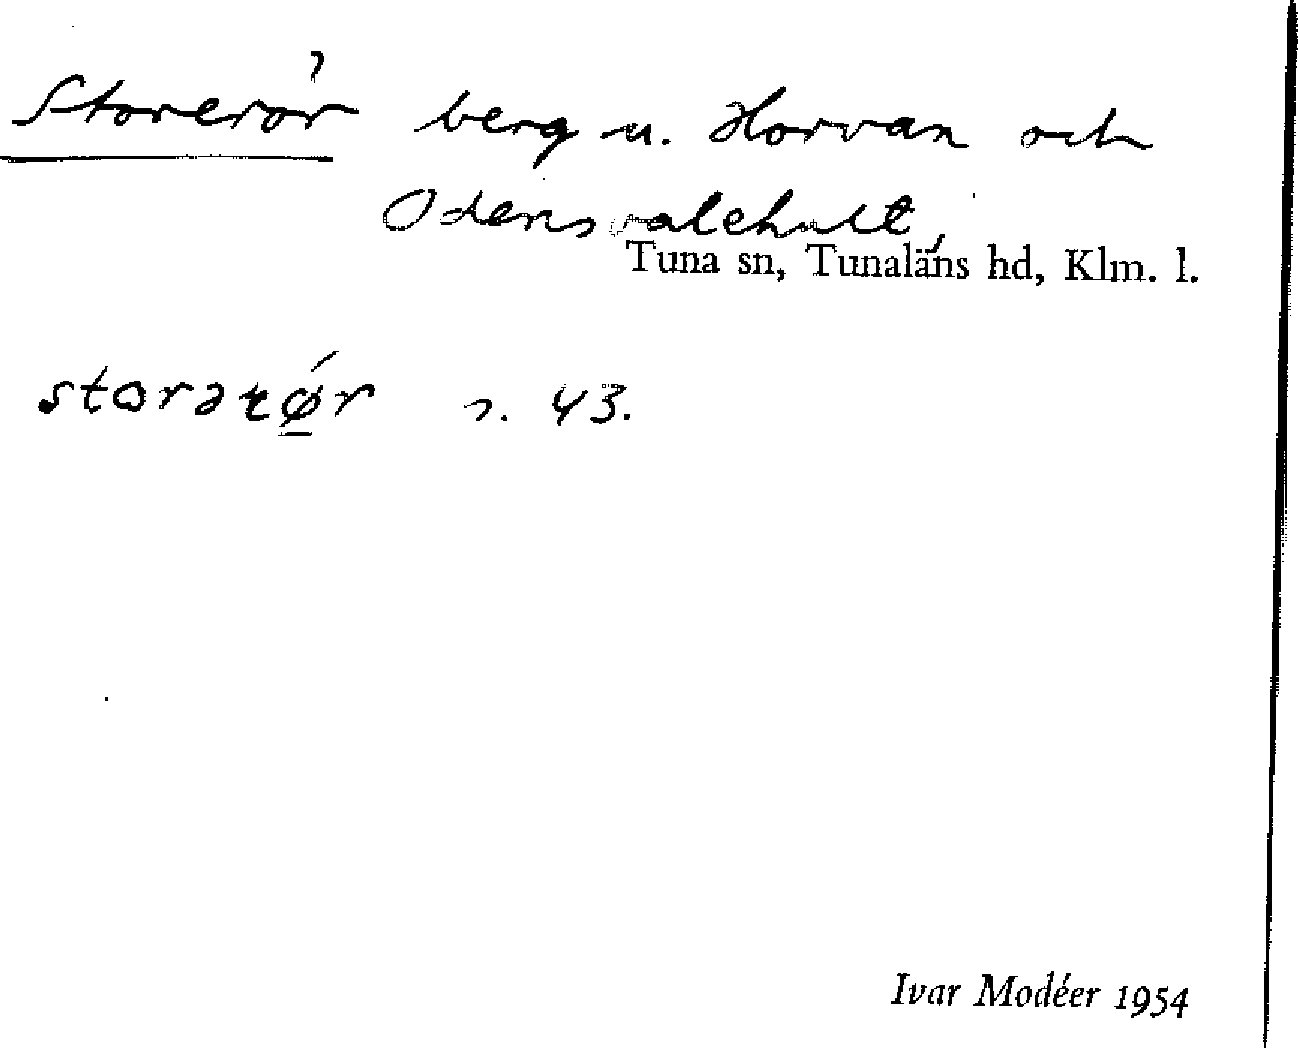 Storerör berg u. Horvan och
Odensvalehult,
Tuna sn, Tunaläns hd, Klm. l.
storərǿ̱r s. 43.
Ivar Modéer 1954